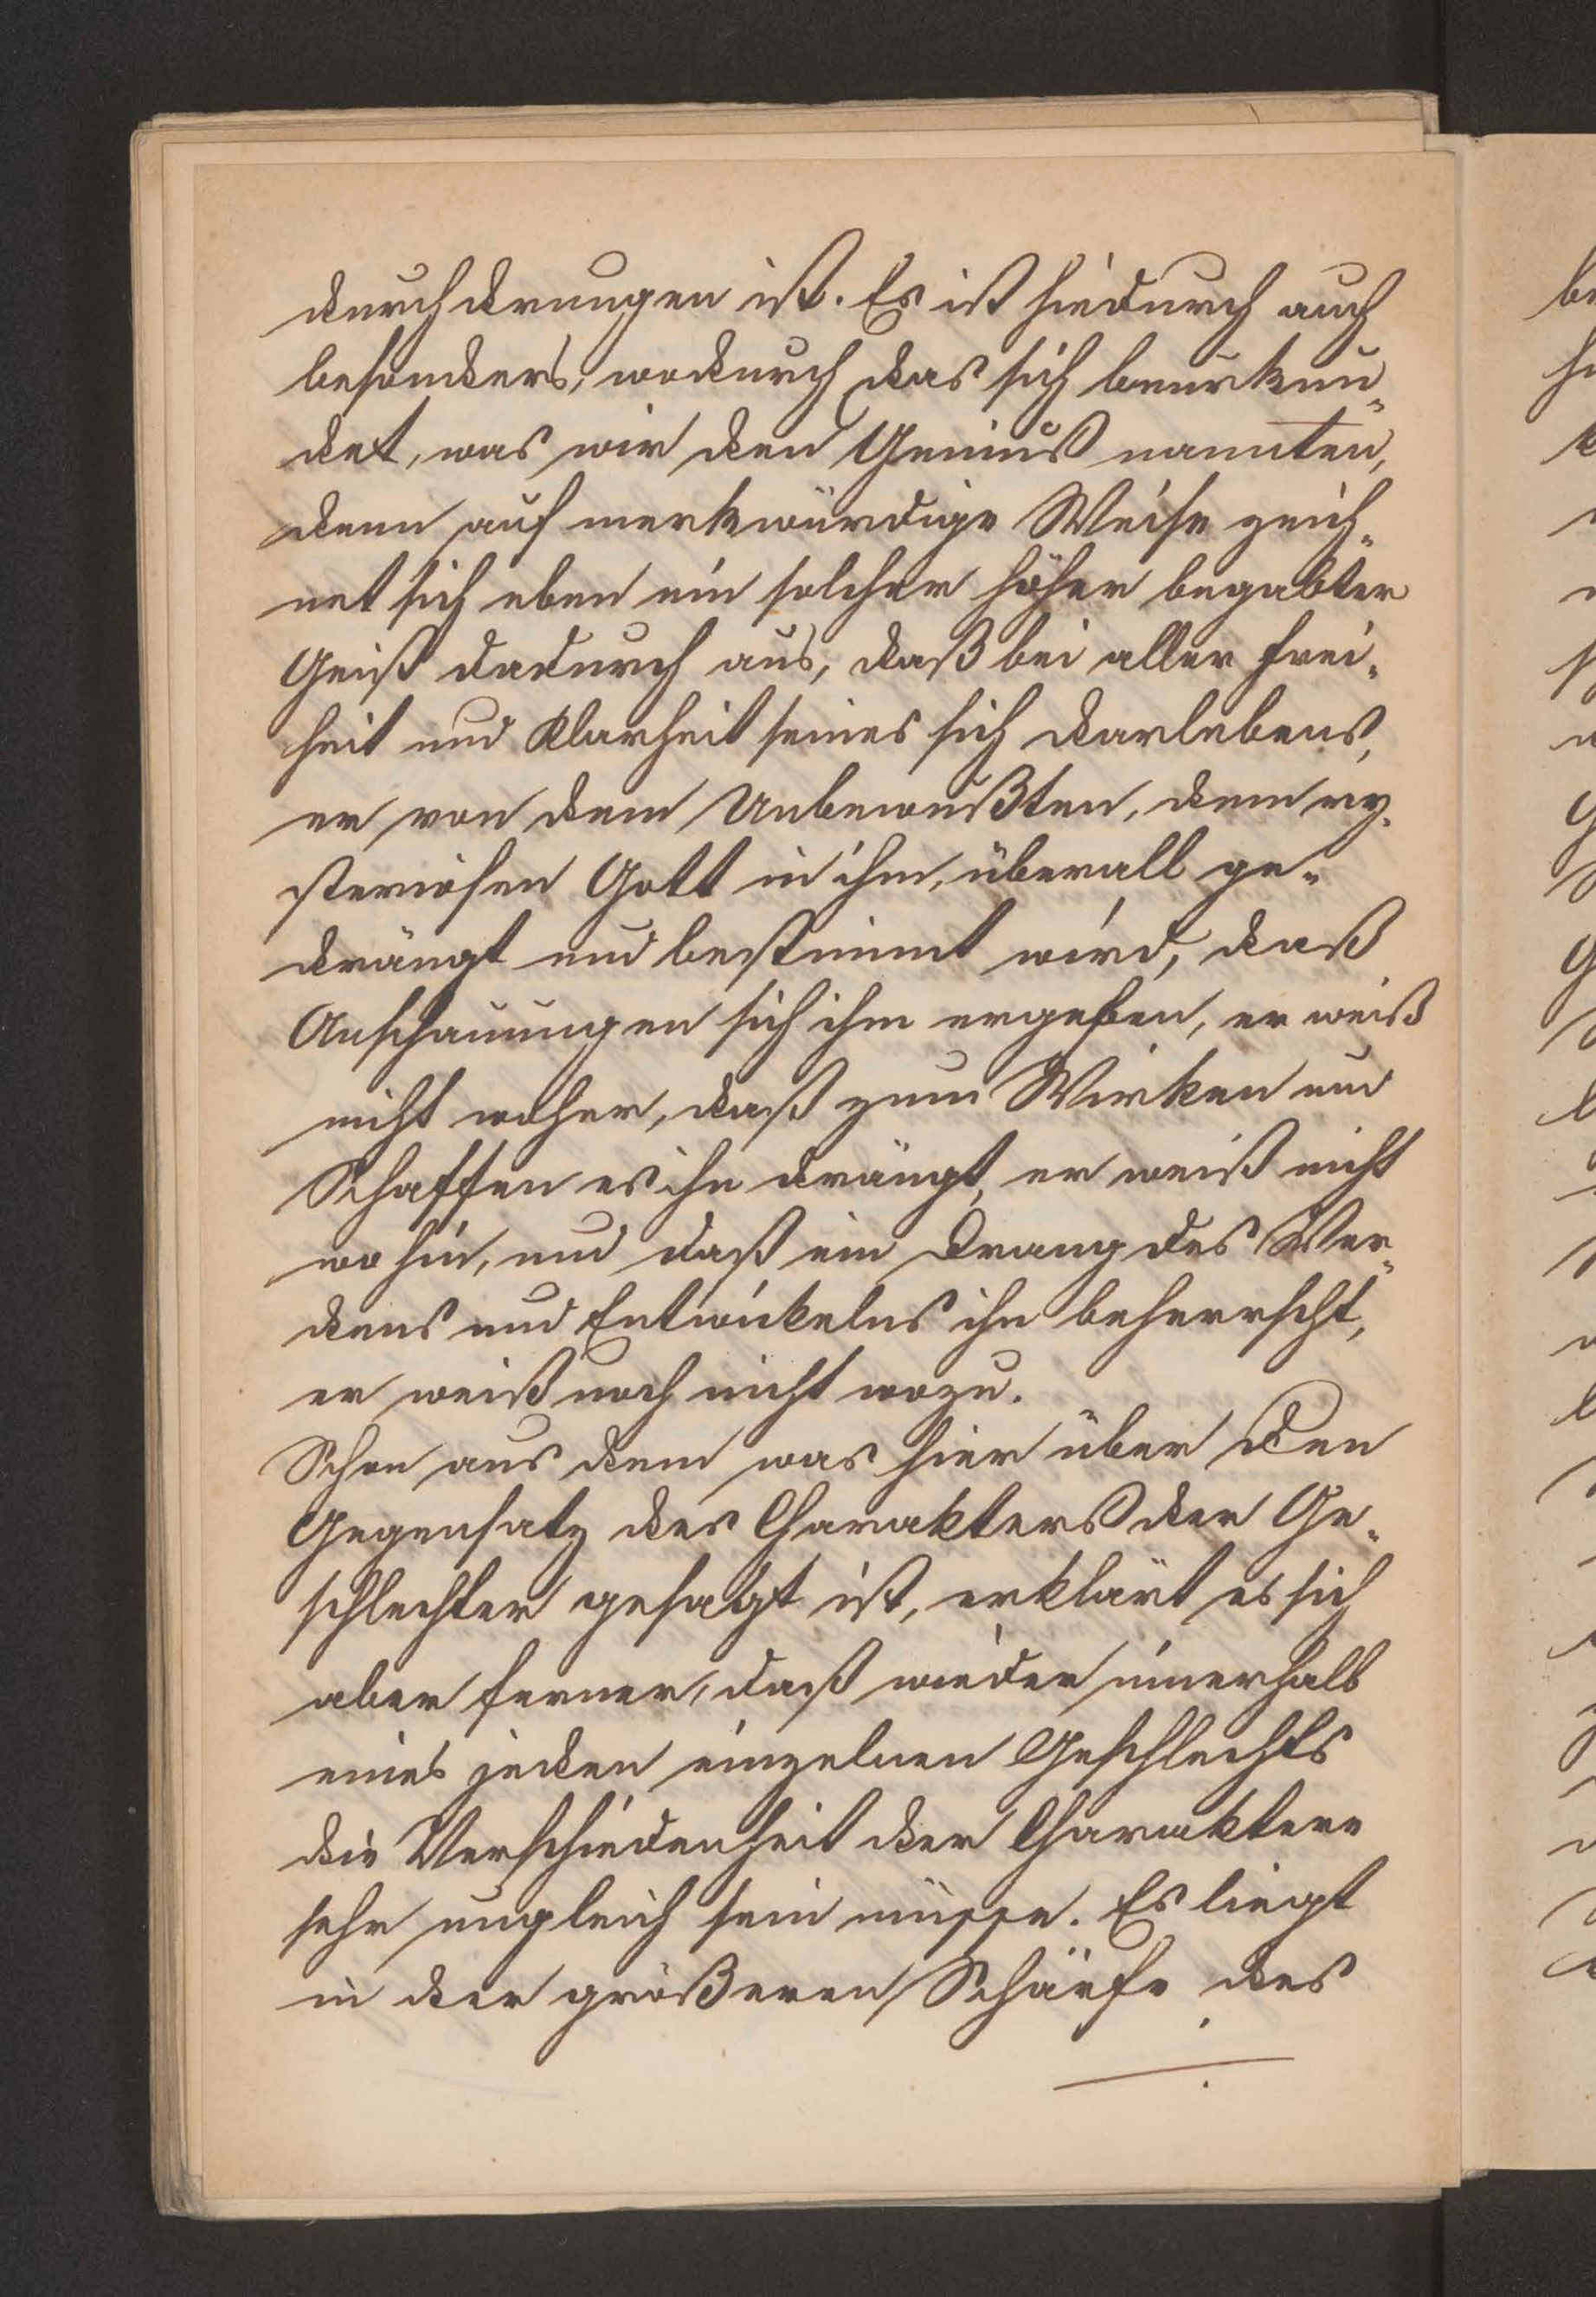 durchdrungen ist. Es ist hiedurch auch
besonders, wodurch das sich beurkun-
det, was wir den Genius nannten,
denn auf merkwürdige Weise zeich-
net sich eben ein solcher höher begabter
Geist dadurch aus, daß bei aller Frei-
heit und Klarheit seines sich Darlebens,
er von dem Unbewußten, dem my-
steriösen Gott in ihm, überall ge-
drängt und bestimmt wird, daß
Anschauungen sich ihm ergeben, er weiß
nicht woher, daß zum Wirken und
Schaffen es ihn drängt, er weiß nicht
wohin, und daß ein Drang des Wer-
dens und Entwickelns ihn beherrscht,
er weiß noch nicht wozu.
Schon aus dem was hier über den
Gegensatz des Charakters der Ge-
schlechter gesagt ist, erklärt es sich
aber ferner, daß wieder innerhalb
eines jeden einzelnen Geschlechts
die Verschiedenheit der Charaktere
sehr ungleich sein müsse. Es liegt
in der größeren Schärfe des